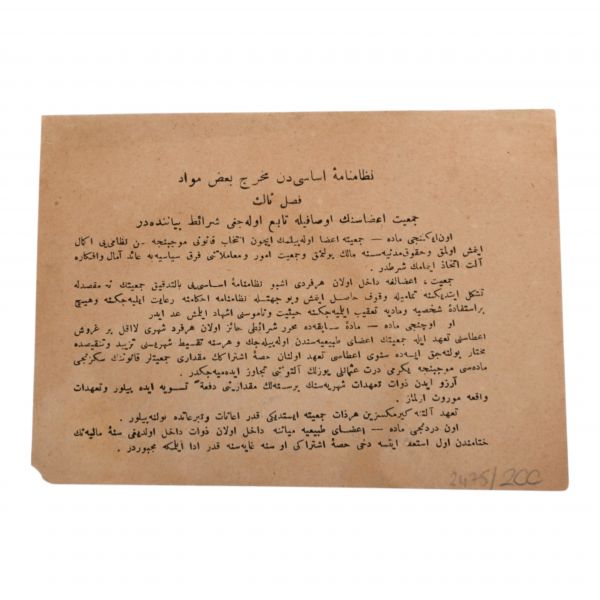 نظامنامهٔ اساسی‌دن مخرج بعض مواد
فصل ثالث
جمعیت اعضاسنك اوصافیله تابع اوله‌جغی شرائط بیاننده‌در
اون‌ایكنجی ماده — جمعیته اعضا اوله‌بیلمك ایچون انتخاب قانونی موجبنجه سن نظامی‌یی اكمال
ایتمش اولمق وحقوق‌مدنیه‌سنه مالك بولنمق وجمعیت امور ومعاملاتنی فرق سیاسیه‌یه عائد آمال وافكاره
آلت اتخاذ ایتمامك شرطدر.
جمعیت، اعضالغه داخل اولان هرفردی اشبو نظامنامهٔ اساسی‌یی بالتدقیق جمعیتك نه مقصدله
تشكل ایتدیكنه تمامیله وقوف حاصل ایتمش وبو جهتله نظامنامه احكامنه رعایت ایلیه‌جكنه وهیچ
بر استفادهٔ شخصیه ومادیه تعقیب ایلمیه‌جكنه حیثیت وناموسنی اشهاد ایلمش عد ایدر
اون اوچنجی ماده — مادهٔ سابقه‌ده محرر شرائطی حائز اولان هرفرد شهری لااقل بر غروش
اعطاسنی تعهد ایله جمعیتك اعضای طبیعیه‌سندن اوله‌بیله‌جك و هرسنه تقسیط شهریسنی تزیید وتنقیصده
مختار بولنه‌جق ایسه‌ده سنوی اعطاسی تعهد اولنان حصهٔ اشتراكك مقداری جمعیتلر قانوننك سكزنجی
ماده‌سی موجبنجه یكرمی درت عثمانلی یوزلك آلتوننی تجاوز ایده‌میه‌جكدر.
آرزو ایدن ذوات تعهدات شهریه‌سنك برسنه‌لك مقدارینی دفعةً تسویه ایده بیلور وتعهدات
واقعه موروث اولماز.
تعهد آلتنه كیرمكسزین هرذات جمعیته ایستدیكی قدر اعانات وتبرعاتده بولنه‌بیلور.
اون دردنجی ماده — اعضای طبیعیه میاننه داخل اولان ذوات داخل اولدیغی سنهٔ مالیه‌نك
ختامندن اول استعفا ایتسه دخی حصهٔ اشتراكی او سنه غایه‌سنه قدر ادا ایلمكه مجبوردر.
2475/200